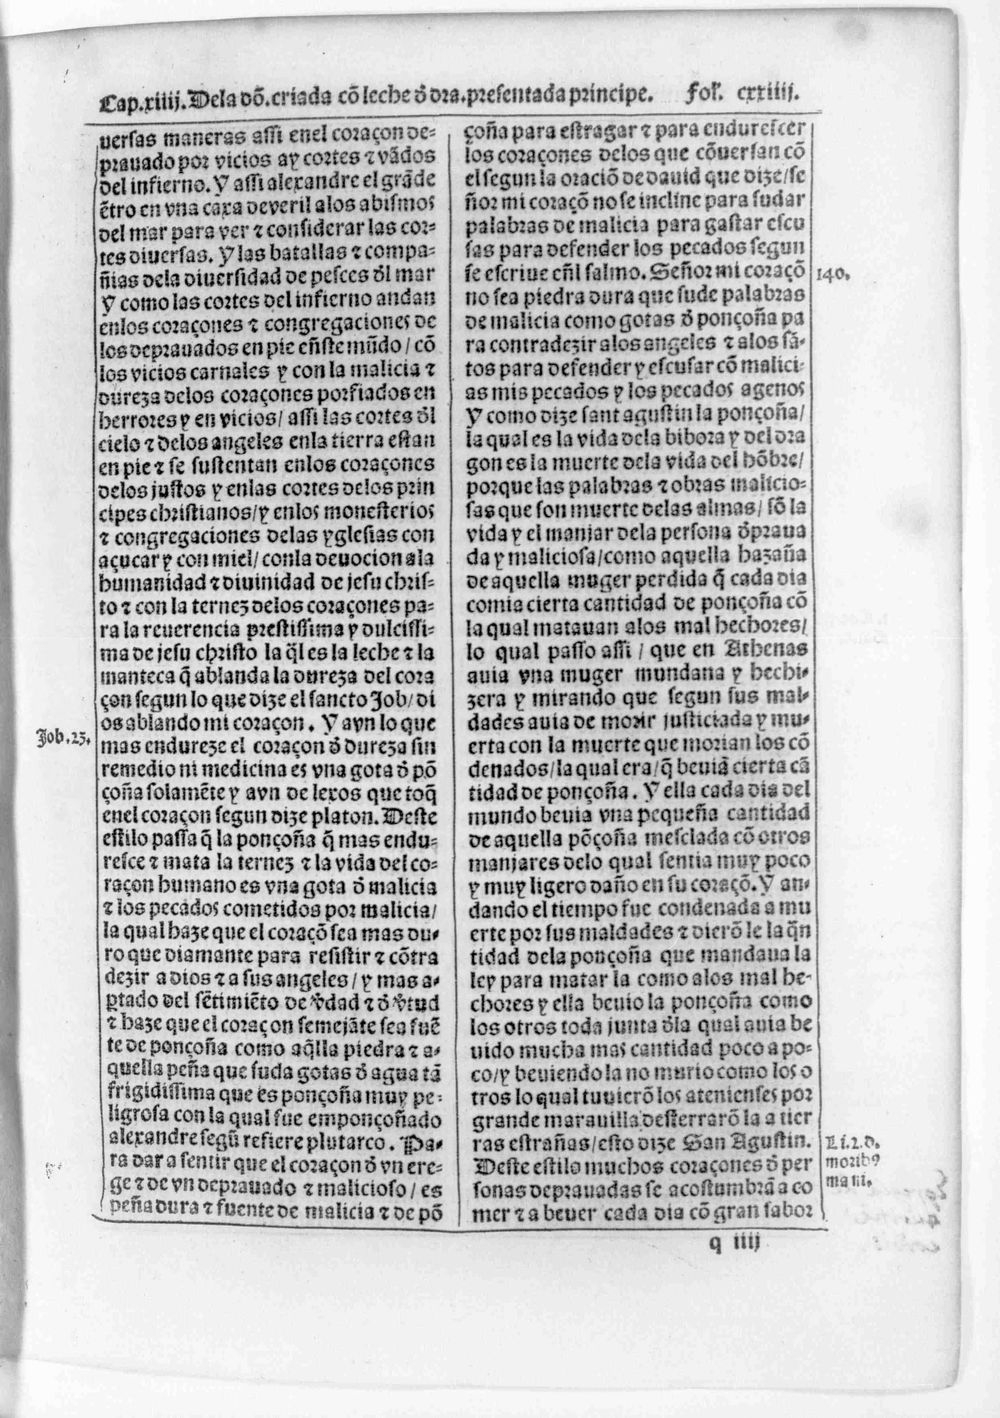 Cap.xiiij. Dela dõ. criada cõ leche ð dra. presentada principe. Fol. cxxiiij.
uersas maneras assi enel coraçon de-
prauado por vicios ay cortes ⁊ vãdos
del infierno. Y assi alexandre el grãde
ẽtro en vna caxa de veril alos abismos
del mar para ver ⁊ considerar las cor-
tes diuersas. Y las batallas ⁊ compa-
ñias dela diuersidad de pesces ðl mar
Y como las cortes del infierno andan
enlos coraçones ⁊ congregaciones de
los deprauados en pie eñste mũdo / cõ
los vicios carnales y con la malicia ⁊
dureza delos coraçones porfiados en
herrores y en vicios / assi las cortes ðl
cielo ⁊ delos angeles enla tierra estan
en pie ⁊ se sustentan enlos coraçones
delos justos y enlas cortes delos prin
cipes christianos / y enlos monesterios
⁊ congregaciones delas yglesias con
açucar y con miel / conla deuocion ala
humanidad ⁊ diuinidad de jesu chris-
to ⁊ con la ternez delos coraçones pa-
ra la reuerencia prestissima y dulcissi-
ma de jesu christo la q̃l es la leche ⁊ la
manteca q̃ ablanda la dureza del cora
çon segun lo que dize el sancto Job / di
os ablando mi coraçon. Y avn lo que
Job.23.
mas endureze el coraçon ð dureza sin
remedio ni medicina es vna gota ð põ
çoña solamẽte y avn de lexos que toq̃
enel coraçon segun dize platon. Deste
estilo passa q̃ la ponçoña q̃ mas endu-
resce ⁊ mata la ternez ⁊ la vida del co-
raçon humano es vna gota ð malicia
⁊ los pecados cometidos por malicia /
la qual haze que el coraçõ sea mas du-
ro que diamante para resistir ⁊ cõtra
dezir a dios ⁊ a sus angeles / y mas a-
ptado del sẽtimiẽto de v̾dad ⁊ ð v̾tud
⁊ haze que el coraçon semejãte sea fuẽ
te de ponçoña como aq̃lla piedra ⁊ a-
quella peña que suda gotas ð agua tã
frigidissima que es ponçoña muy pe-
ligrosa con la qual fue emponçoñado
alexandre segũ refiere plutarco. Pa-
ra dar a sentir que el coraçon ð vn ere-
ge ⁊ de vn deprauado ⁊ malicioso / es
peña dura ⁊ fuente de malicia ⁊ de põ
çoña para estragar ⁊ para endurescer
los coraçones delos que cõuersan cõ
el segun la oraciõ de dauid que dize / se
ñor mi coraçõ no se incline para sudar
palabras de malicia para gastar escu
sas para defender los pecados segun
se escriue eñl salmo. Señor mi coraçõ
140.
no sea piedra dura que sude palabras
de malicia como gotas ð ponçoña pa
ra contradezir alos angeles ⁊ alos sã-
tos para defender y escusar cõ malici-
as mis pecados y los pecados agenos
Y como dize sant agustin la ponçoña /
la qual es la vida dela bibora y del dra
gon es la muerte dela vida del hõbre /
porque las palabras ⁊ obras malicio-
sas que son muerte delas almas / sõ la
vida y el manjar dela persona ðpraua
da y maliciosa / como aquella hazaña
de aquella muger perdida q̃ cada dia
comia cierta cantidad de ponçoña cõ
la qual matauan alos mal hechores /
lo qual passo assi / que en Athenas
auia vna muger mundana y hechi-
zera y mirando que segun sus mal-
dades auia de morir justiciada y mu-
erta con la muerte que morian los cõ
denados / la qual era / q̃ beuiã cierta cã
tidad de ponçoña. Y ella cada dia del
mundo beuia vna pequeña cantidad
de aquella põçoña mesclada cõ otros
manjares delo qual sentia muy poco
y muy ligero daño en su coraçõ. Y an-
dando el tiempo fue condenada a mu
erte por sus maldades ⁊ dierõ le la q̃n
tidad dela ponçoña que mandaua la
ley para matar la como alos mal he-
chores y ella beuio la ponçoña como
los otros toda junta ðla qual auia be
uido mucha mas cantidad poco a po-
co / y beuiendo la no murio como los o
tros lo qual tuuierõ los atenienses por
grande marauilla desterrarõ la a tier
ras estrañas / esto dize San Agustin.
Li.2.d.
moribꝰ
mani.
Deste estilo muchos coraçones ð per
sonas deprauadas se acostumbrã a co
mer ⁊ a beuer cada dia cõ gran sabor
q iiij